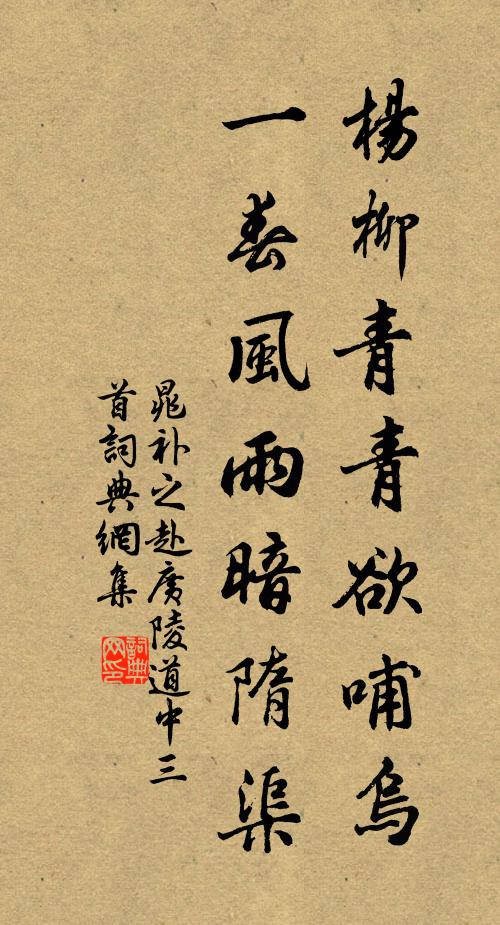 楊柳青青欲哺烏
一春風雨暗隋渠
晁補之赴廣陵道中三
首詞典網集
詞典网印